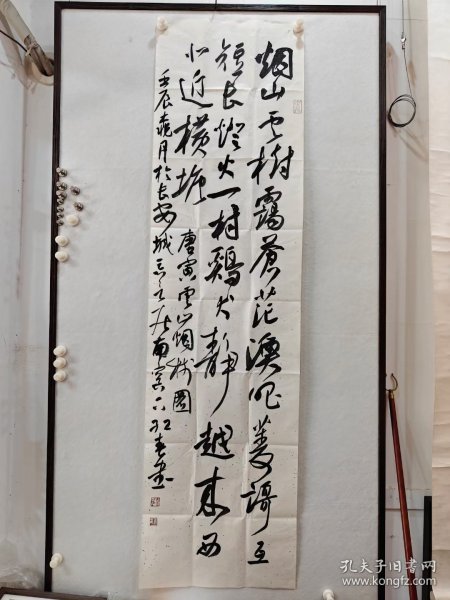 烟山云樹靄蒼茫漁唱菱謌互
短長燈火一村鷄犬靜越來西
北近橫塘 唐寅雲山烟樹圖
壬辰月於長安城南窗下
孔夫子旧书网
www.kongfz.com